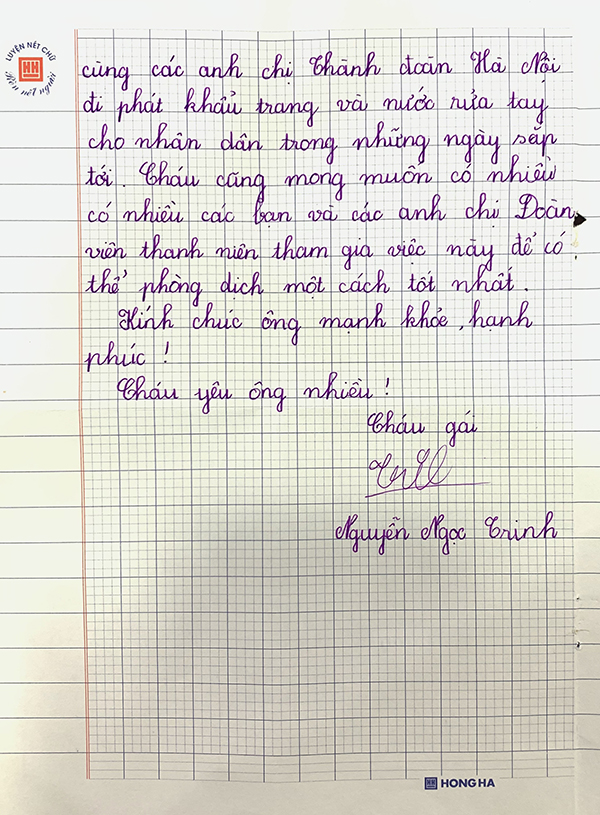 LUYỆN NẾT CHỮ
Rèn nết người
cùng các anh chị Thành đoàn Hà Nội
đi phát khẩu trang và nước rửa tay
cho nhân dân trong những ngày sắp
tới. Cháu cũng mong muốn có nhiều
có nhiều các bạn và các anh chị Đoàn
viên thanh niên tham gia việc này để có
thể phòng dịch một cách tốt nhất.
Kính chúc ông mạnh khỏe, hạnh
phúc !
Cháu yêu ông nhiều !
Cháu gái
Nguyễn Ngọc Trinh
HONG HA